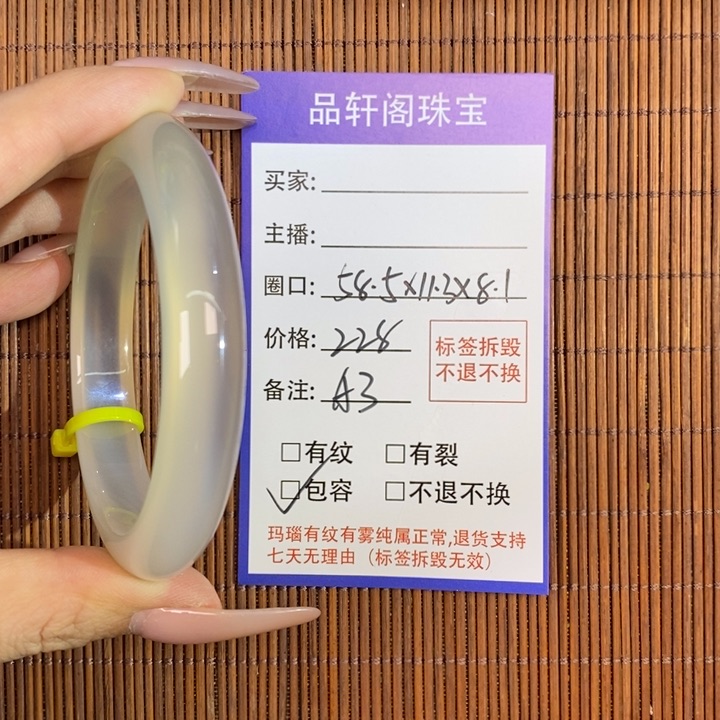 品轩阁珠宝
买家:
主播:
圈口: 58.5x11.3x8.1
价格: 228
标签拆毁
不退不换
备注: A3
□有纹 □有裂
□包容 □不退不换
玛瑙有纹有雾纯属正常,退货支持
七天无理由（标签拆毁无效）